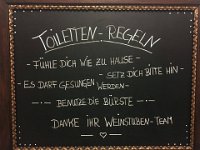 TOILETTEN-REGELN
- FÜHLE DICH WIE ZU HAUSE -
- SETZ DICH BITTE HIN -
- ES DARF GESUNGEN WERDEN -
- BENUTZE DIE BÜRSTE -
DANKE IHR WEINSTUBEN-TEAM